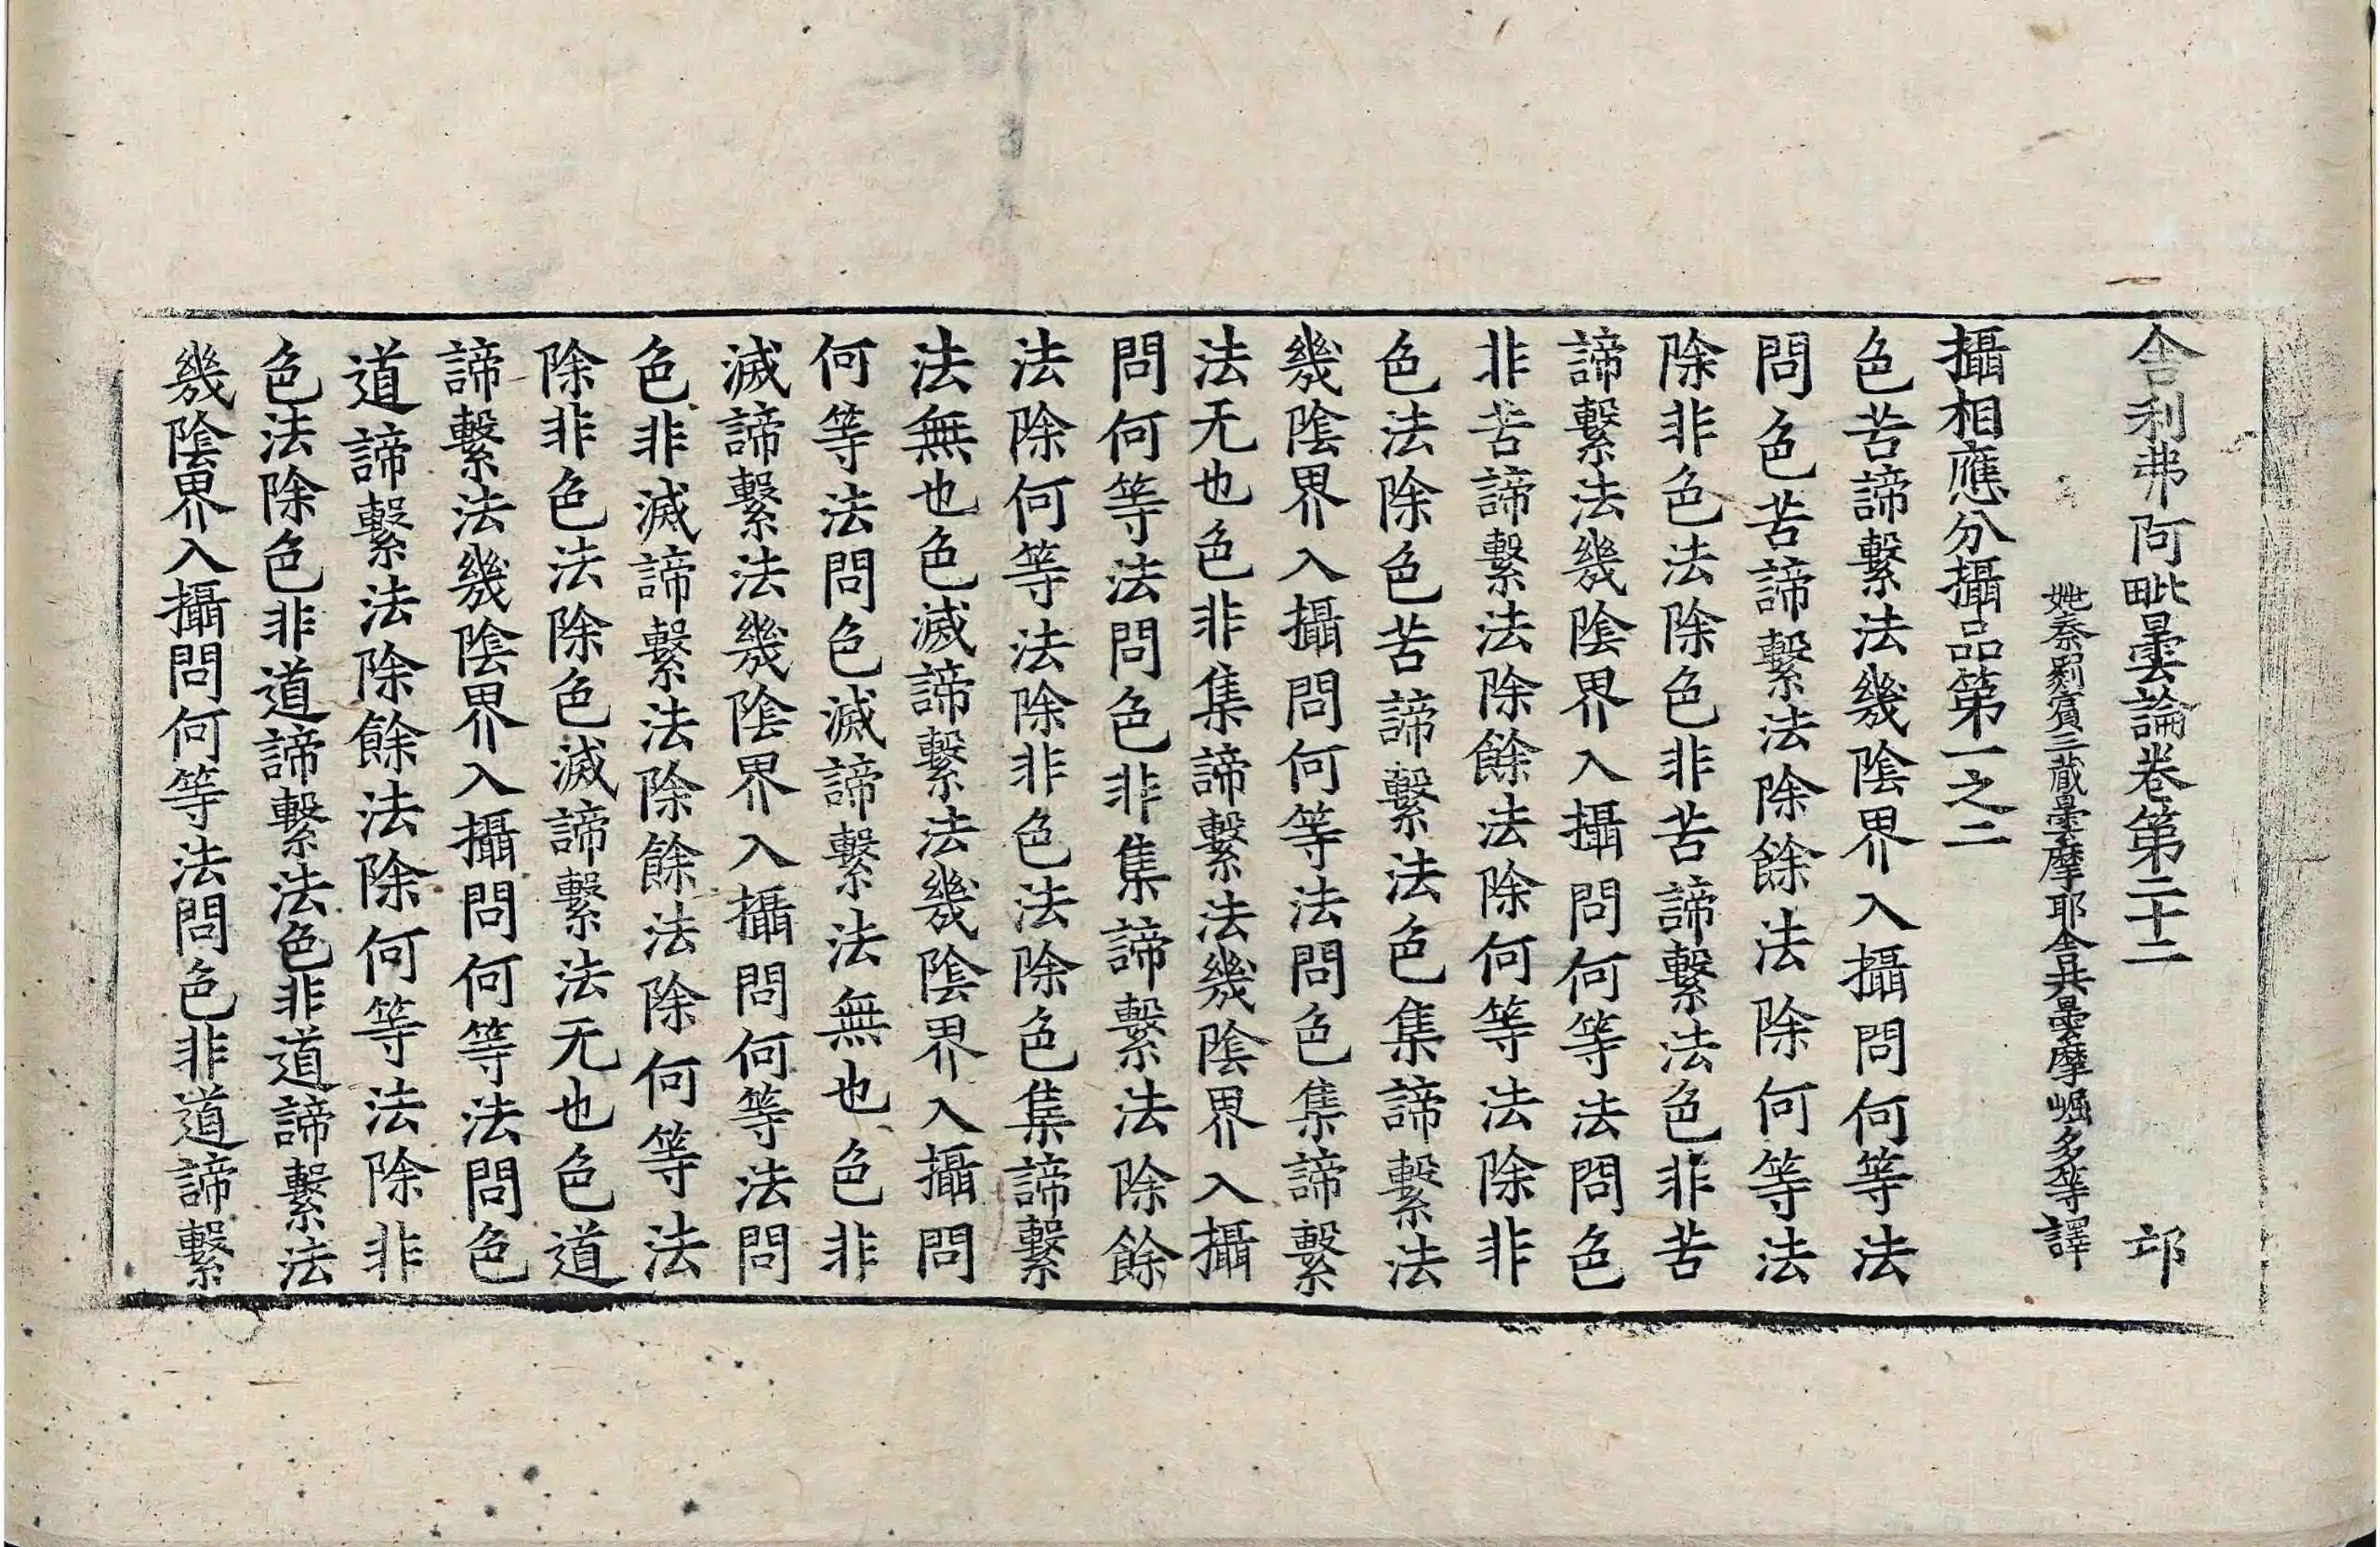 舍利弗阿毗曇論卷第二十二　邛
姚秦罽賓三藏曇摩耶舍共曇摩崛多等譯
攝相應分攝品第一之二
色苦諦繫法幾陰界入攝問何等法
問色苦諦繫法除餘法除何等法
除非色法除色非苦諦繫法色非苦
諦繫法幾陰界入攝問何等法問色
非苦諦繫法除餘法除何等法除非
色法除色苦諦繫法色集諦繫法
幾陰界入攝問何等法問色集諦繫
法无也色非集諦繫法幾陰界入攝
問何等法問色非集諦繫法除餘
法除何等法除非色法除色集諦繫
法無也色滅諦繫法幾陰界入攝問
何等法問色滅諦繫法無也色非
滅諦繫法幾陰界入攝問何等法問
色非滅諦繫法除餘法除何等法
除非色法除色滅諦繫法无也色道
諦繫法幾陰界入攝問何等法問色
道諦繫法除餘法除何等法除非
色法除色非道諦繫法色非道諦繫法
幾陰界入攝問何等法問色非道諦繫